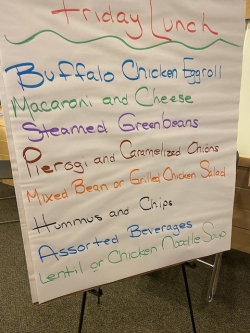 Friday Lunch
Buffalo Chicken Eggroll
Macaroni and Cheese
Steamed Greenbeans
Pierogi and Caramelized Onions
Mixed Bean or Grilled Chicken Salad
Hummus and Chips
Assorted Beverages
Lentil or Chicken Noodle Soup